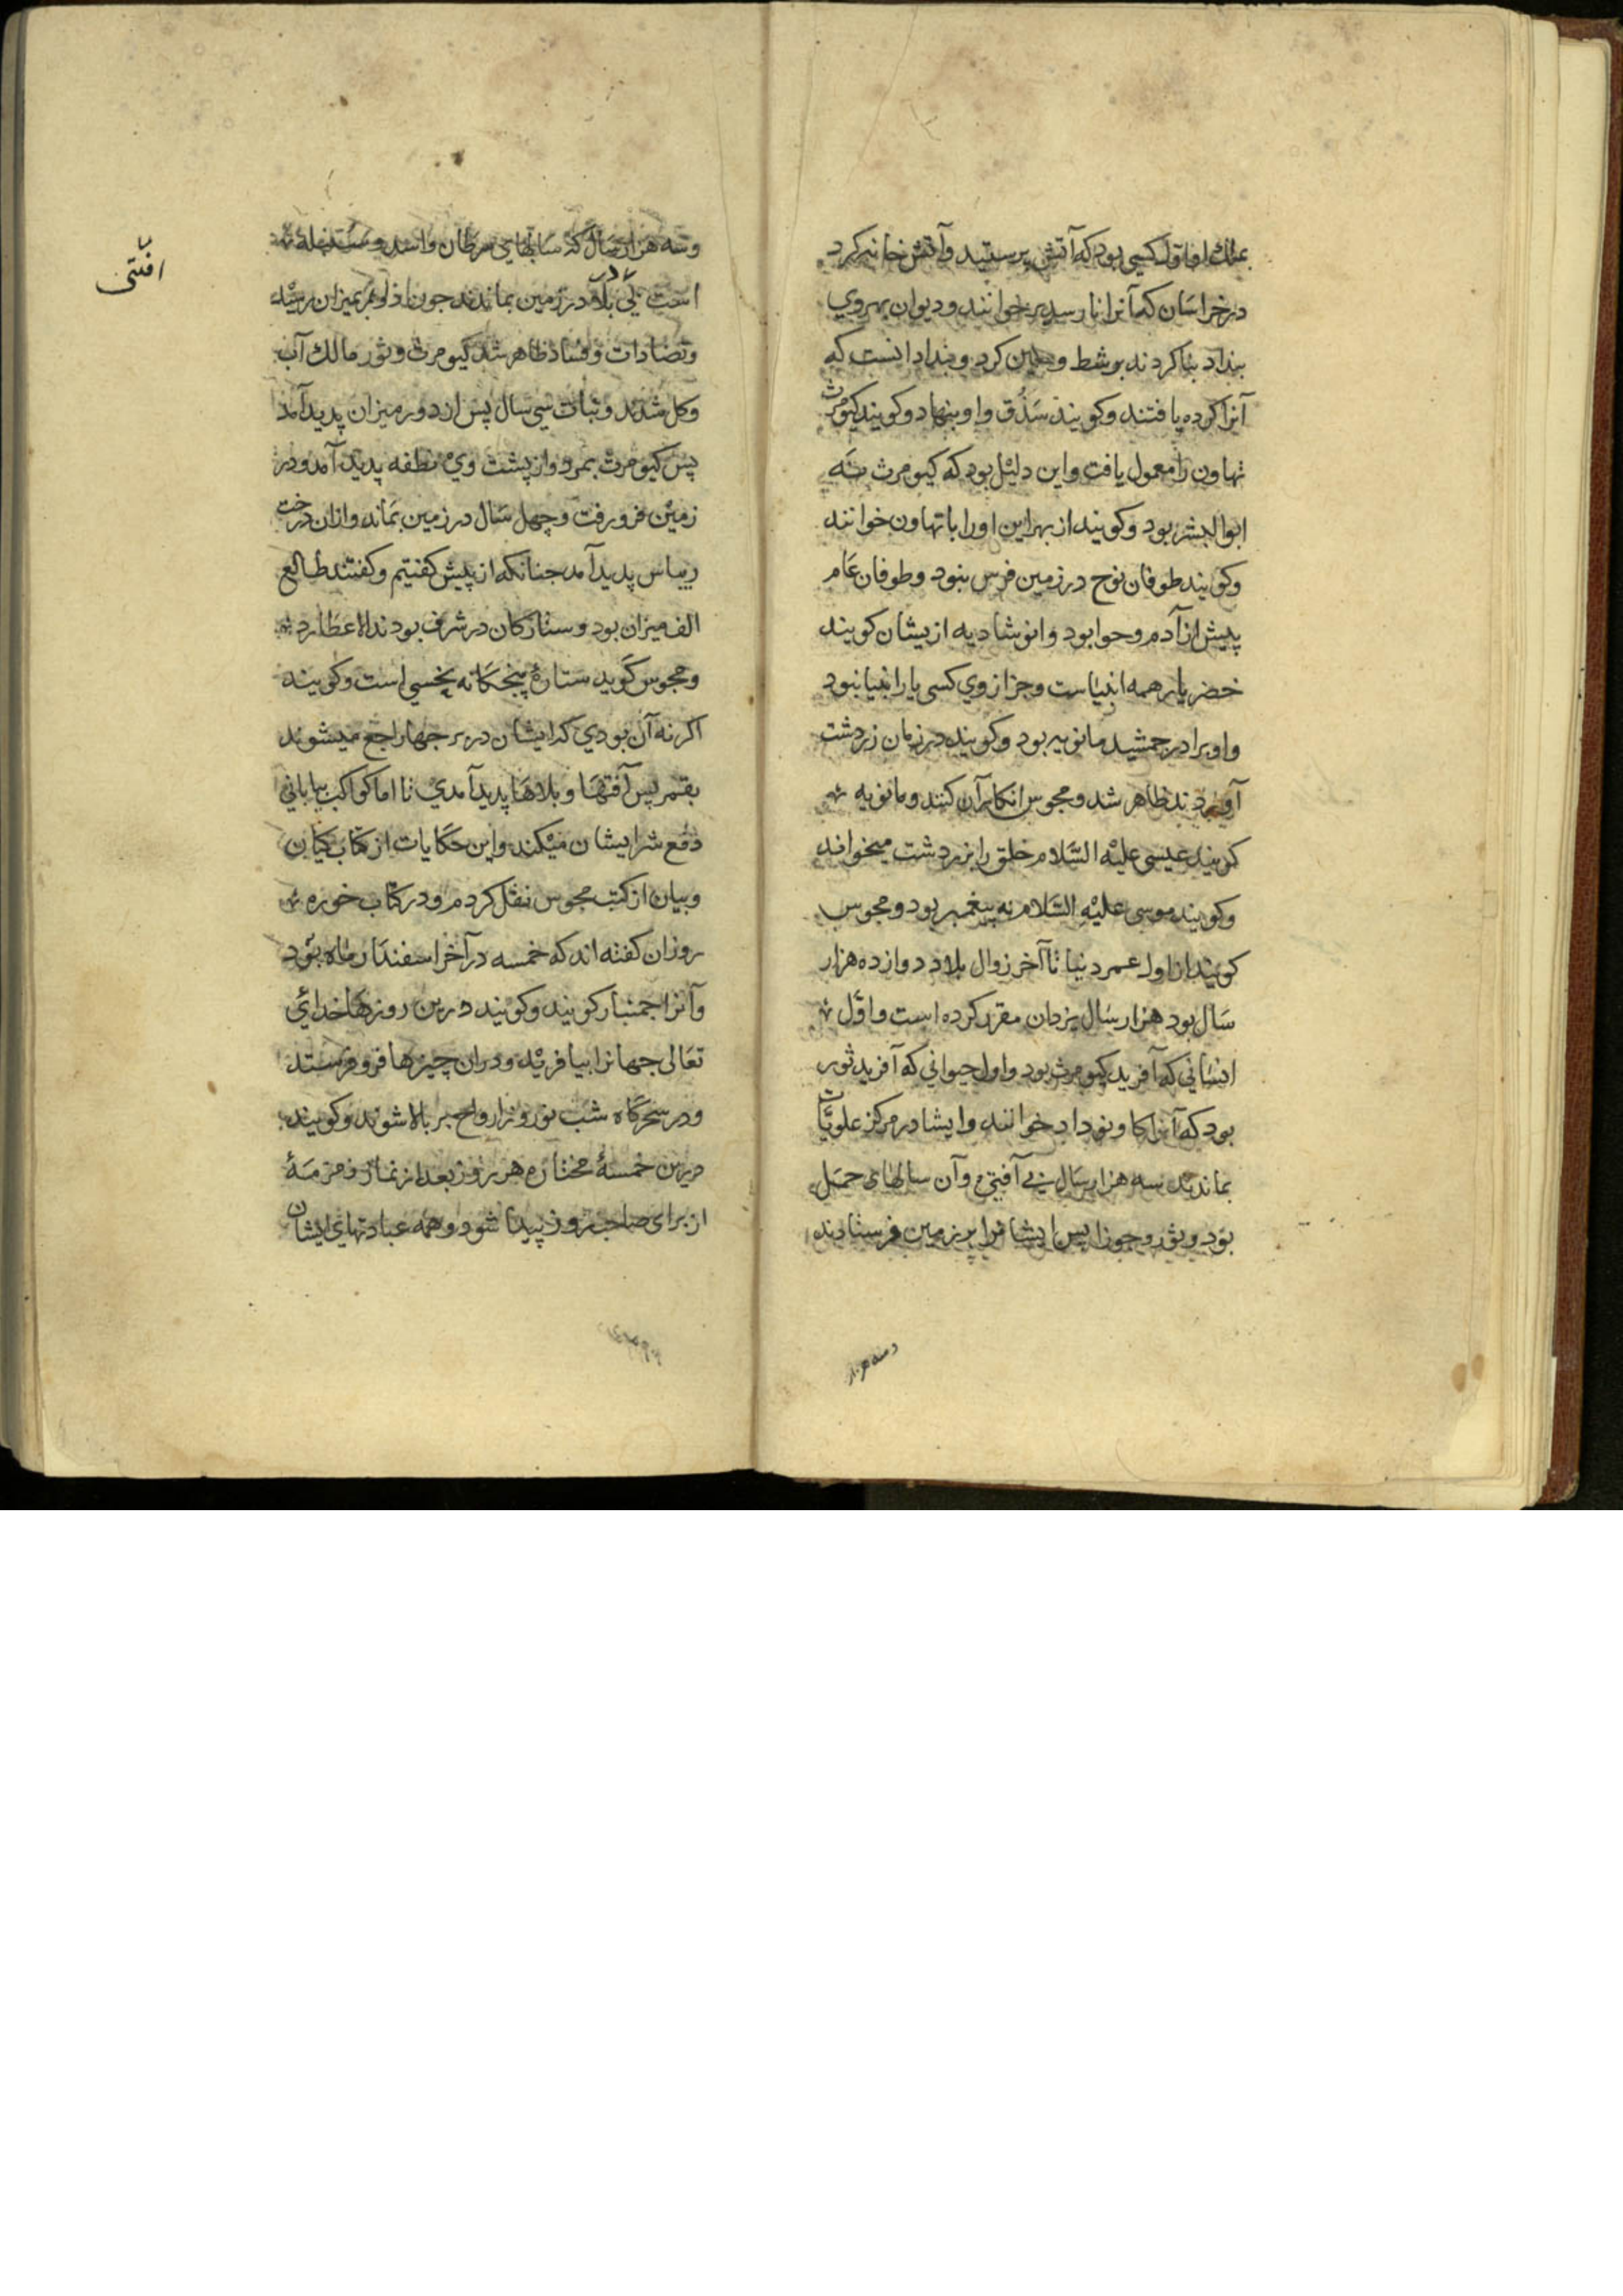 بملك او اول كسى بود كه آتش پرستيد وآتش خانه كرد
در خراسان كه آنرا نارسيد بر خوانند وديوان بهروي
بنا كردند بر شط كرد وبغداد انست كه
آنرا كرده يافتند وكويند سَذَق واو بنهاد وكويند كيومرث
تهاون را معمول يافت واين دليل بود كه كيومرث نَه
ابوالبشر بود وكويند از بهر اين اورا با تهاون خوانند
وكويند طوفان نوح در زمين فرس نبود وطوفان عام
پيش از آدم وحوا بود وانوشاديه ازيشان كويند
خضر يار همه انبياست وجز از وي كسى يار انبيا نبود
واو برادر جمشيد مانويه بود وكويند در زمان زردشت
آوردند ظاهر شد ومجوس انكار آن كنند ومانويه
كويند عيسى عليه السَّلام خلق را بزردشت ميخواند
وكويند موسى عليه السَّلام نه پيغمبر بود ومجوس
كويند از اول عمر دنيا تا آخر زوال بلاد دوازده هزار
سال بود هزار سال يزدان مقرر كرده است واوّل
انسانى كه آفريد كيومرث بود واول حيوانى كه آفريد ثور
بود كه آنرا كاو نوداد خوانند وايشا در مركز علويات
بماندند سه هزار سال بي آفتي وآن سالهاى حمل
بود وثور وجوزا پس ايشانرا بر زمين فرستادند
وسه هزار
وسه هزار سال كه سالهاي سرطان واسد وسنبله
است بي بلا در زمين بماندند جون اول بميزان رسيد
وتضادات وفساد ظاهر شد كيومرث وثور مالك آب
وكل شدند ونبات سي سال پس از دور ميزان پديد آمد
پس كيومرث بمرد واز پشت وي نطفه پديد آمد ودر
زمين فرو رفت وچهل سال در زمين بماند وازان درخت
ريباس پديد آمد جنانكه از پيش كفتيم وكفتند طالع
الف ميزان بود وستاركان در شرف بودند الا عطارد
ومجوس كويد ستارهٔ پنجكانه نحسي است وكويند
اكر نه آن بودي كه ايشان در برجها راجع ميشوند
بقمر پس آفتها وبلاها پديد آمدي نا اما كواكب بياباني
دفع شر ايشان ميكند واين حكايات از كتاب كيان
وبيان از كتب مجوس نقل كردم ودر كتاب خوره
روزان كفته اند كه خمسه در آخر اسفندار ماه بود
وآنرا جمنبار كويند وكويند درين روزها خداي
تعالى جهانرا بيافريد ودران چيزها فرو فرستد
ودر سحركاه شب نوروز ارواح بر بالا شوند وكويند
درين خمسهٔ مختاره هر روز بعد از نماز زمزمهٔ
از براى صاحب روز پيدا شود وهمه عبادتهاي ايشان
افتى